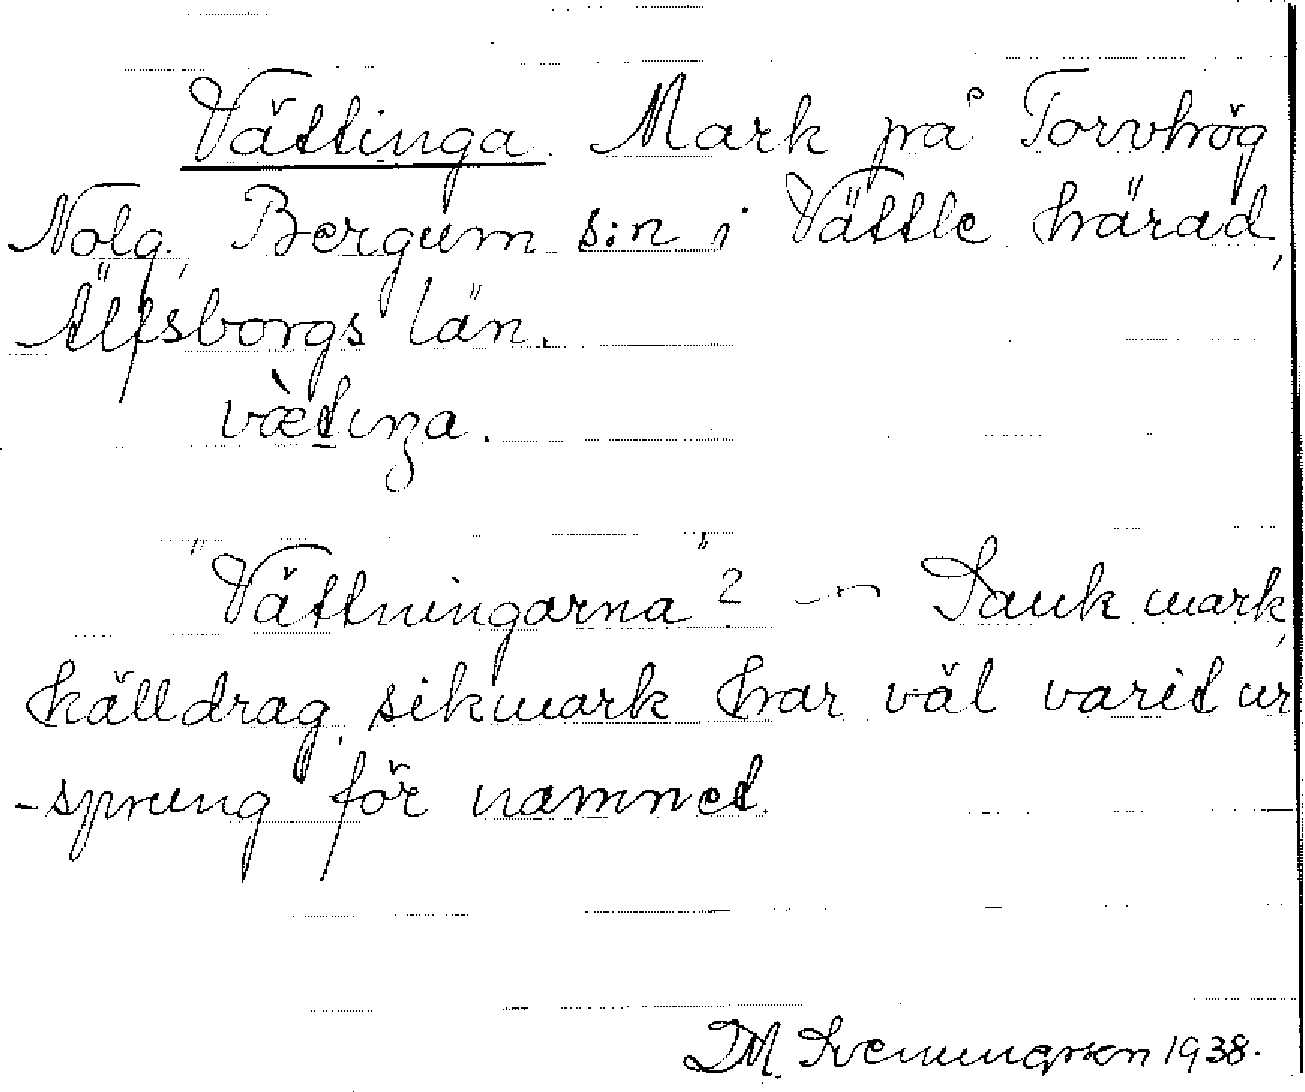 Vättinga. Mark på Torvhög
Nolg. Bergum s:n i Vättle härad,
Älfsborgs län.
vætıŋa.
"Vättningarna"? — Sank mark,
källdrag, sikmark har väl varit ur
-sprung för namnet.
D.M. Svenungsson 1938.